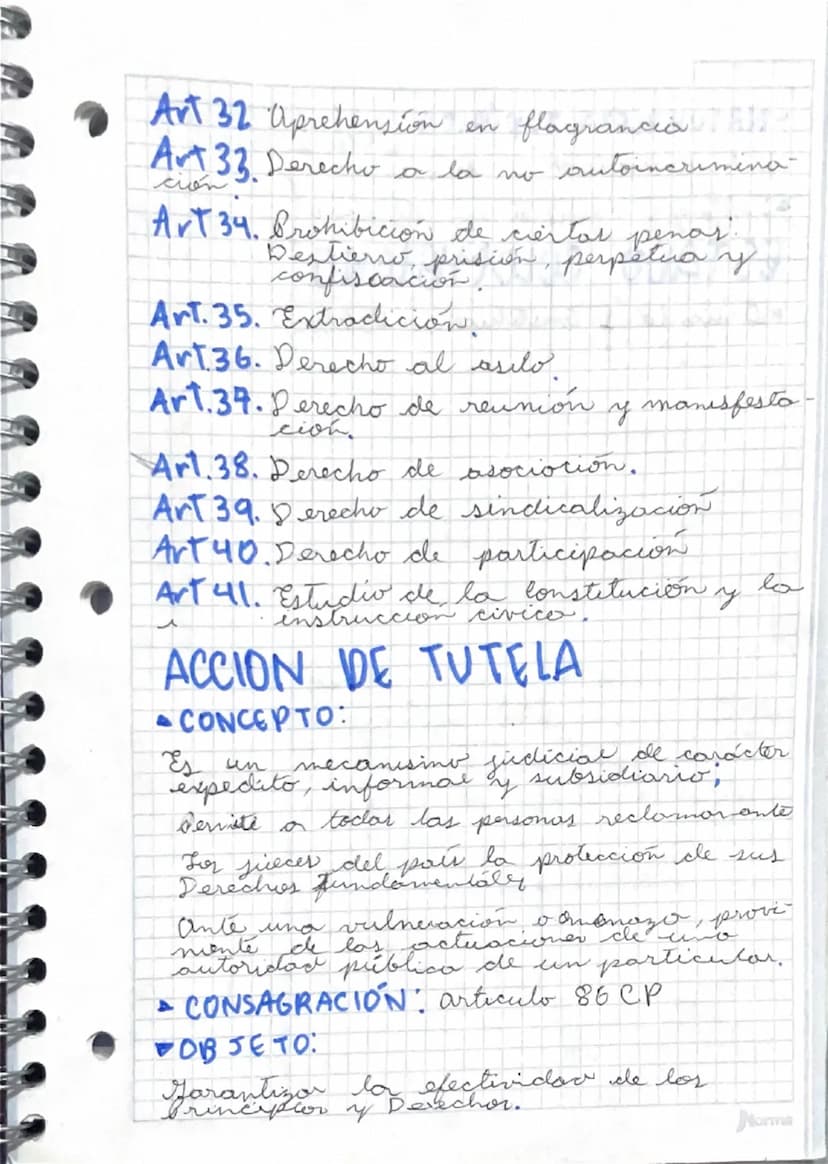 Art 32 Aprehensión en flagrancia
Art 33. Derecho a la no autoincrimina-
ción.
Art 34. Prohibición de ciertas penas:
Destierro, prisión, perpetua y
confiscación.
Art. 35. Extradición.
Art 36. Derecho al asilo.
Art. 37. Derecho de reunión y manisfesta-
ción.
Art. 38. Derecho de asociación.
Art 39. Derecho de sindicalización
Art 40. Derecho de participación
Art 41. Estudio de la Constitución y la
instrucción cívica.
ACCION DE TUTELA
CONCEPTO:
Es un mecanismo judicial de carácter
expedito, informal y subsidiario;
Permite a todas las personas reclamar ante
los jueces del país la protección de sus
Derechos fundamentáles
Ante una vulneración o amenaza, provi-
niente de las actuaciones de una
autoridad pública de un particular.
CONSAGRACIÓN: articulo 86 CP
OBJETO:
Garantizar la efectividad de los
principios y Derechos.
Norma